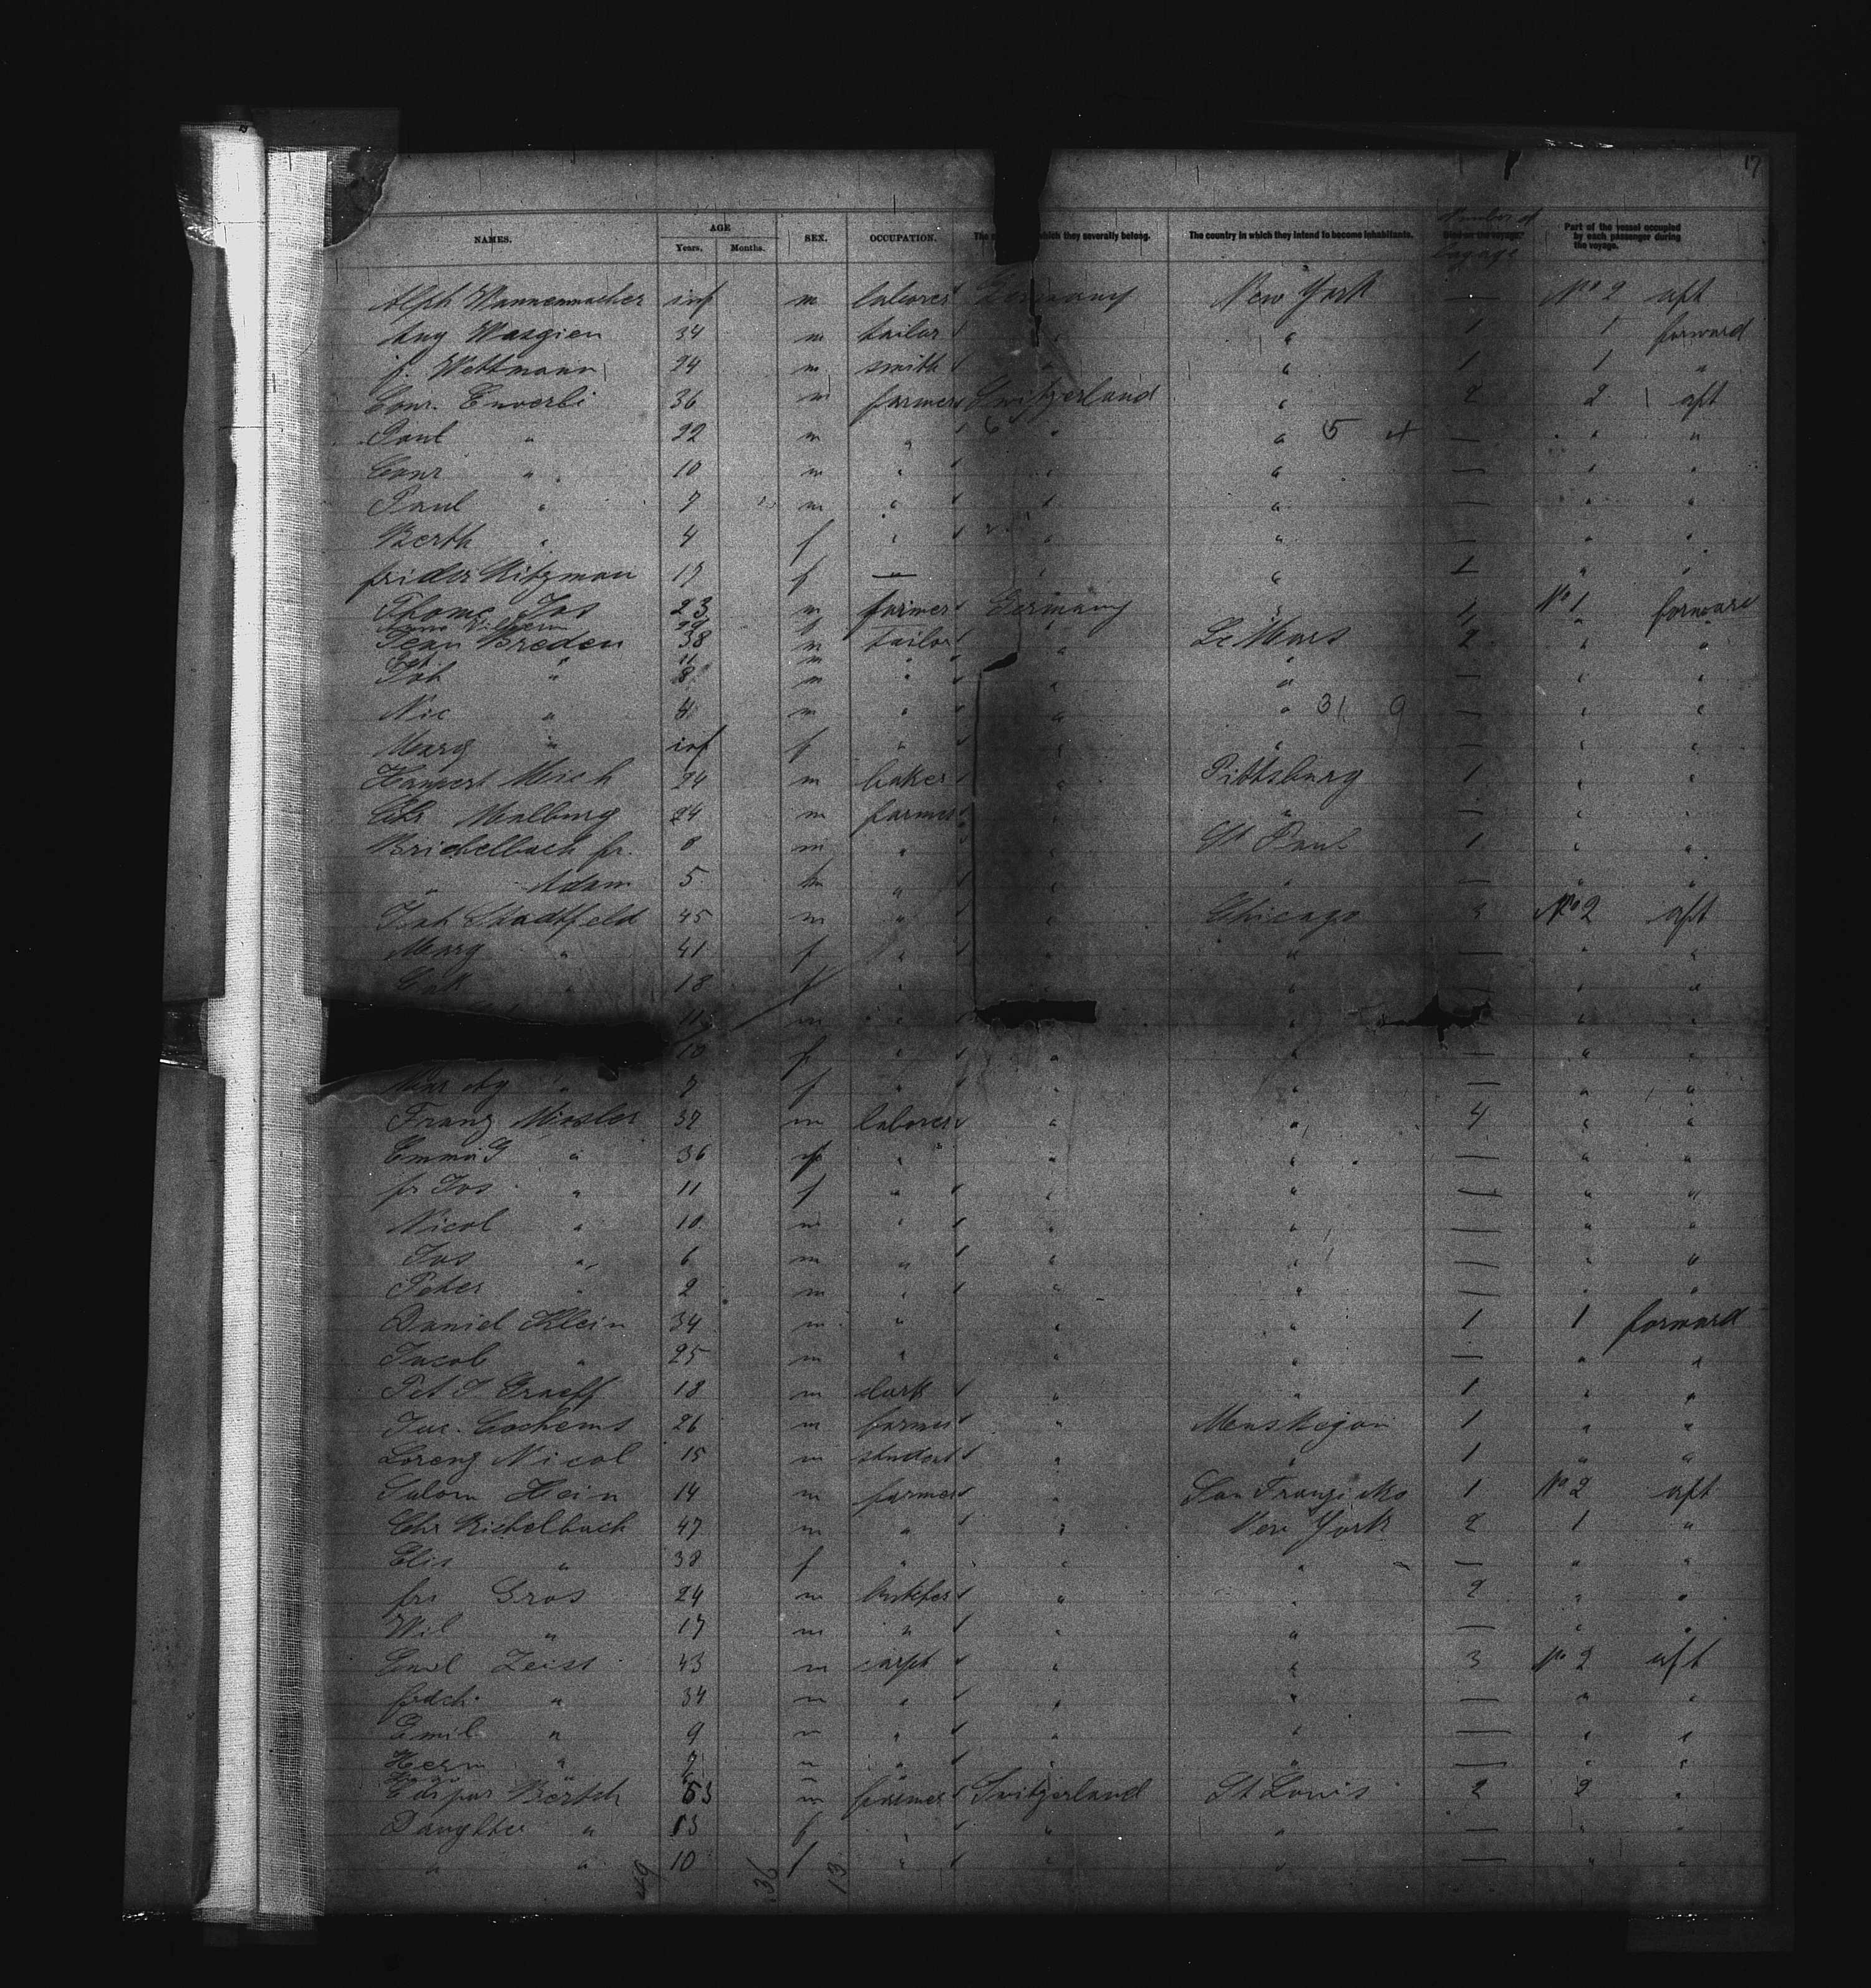 17
NAMES. AGE Years. Months. SEX. OCCUPATION. The which they severally belong. The country in which they intend to become inhabitants. Number of Died on the voyage. bagage Part of the vessel occupied by each passenger during the voyage.
Alph Wannenmacher inf m laborer Germany New York — No 2 aft
Aug Wasgien 34 m tailor " " 1 1 forward
f. Wettmann 24 m smith " " 1 1 "
Conr. 36 m farmer Switzerland " 2 2 aft
Paul " 22 m " 6 " " 5 — " "
Conr " 10 m " " " — " "
Paul " 7 m " " " — " "
Berth " 4 f " " " — " "
frieder Ritzman 17 f — " " 1 " "
Thome Jos 23 m farmer Germany " 1 No 1 forward
Jean Breden 38 m tailor " Le Mars 2 " "
11 m " "
Joh " 8 m " " " — " "
Nic " 4 m " " " 31 9 — " "
Marg " inf f " " " — " "
Mich 24 m baker " Pittsburg 1 " "
Chr Malburg 24 m farmer " " — " "
Brichelbach fr. 8 m " " St Paul 1 " "
" Adam 5 m " " " — " "
Joh Stadtfeld 45 m " " Chicago 3 No 2 aft
Marg " 41 f " " " — " "
" 18 f " " " — " "
11 m " " " "
10 f " " " — " "
" 7 f " " " — " "
Franz Miesler 37 m laborer " " 4 " "
Emma " 36 f " " " — " "
fr Jos " 11 f " " " — " "
Nicol " 10 m " " " — " "
Jos " 6 m " " " — " "
Peter " 2 m " " " — " "
Daniel Klein 34 m " " " 1 1 forward
Jacob " 25 m " " " — " "
Pet J Graeff 18 m clark " " 1 " "
Jac. Cochems 26 m farmer " Muskegon 1 " "
Lorenz Nicol 15 m student " " 1 " "
Salom Hein 14 m farmer " San Franzisko 1 No 2 aft
Chr Richelbach 47 m " " New York 2 1 "
Elis " 38 f " " " — " "
fri Gros 24 m " " 2 " "
Wil " 17 m " " " — " "
Emil Zeiss 43 m carpt " " 3 No 2 aft
frdch. " 34 m " " " — " "
Emil " 9 m " " " — " "
Herm " 7 m " " " — " "
Caspar Bertsch 53 m farmer Switzerland St Louis 2 2 "
Daughter " 13 f " " " — " "
" " 10 f " " " — " "
49 36 13